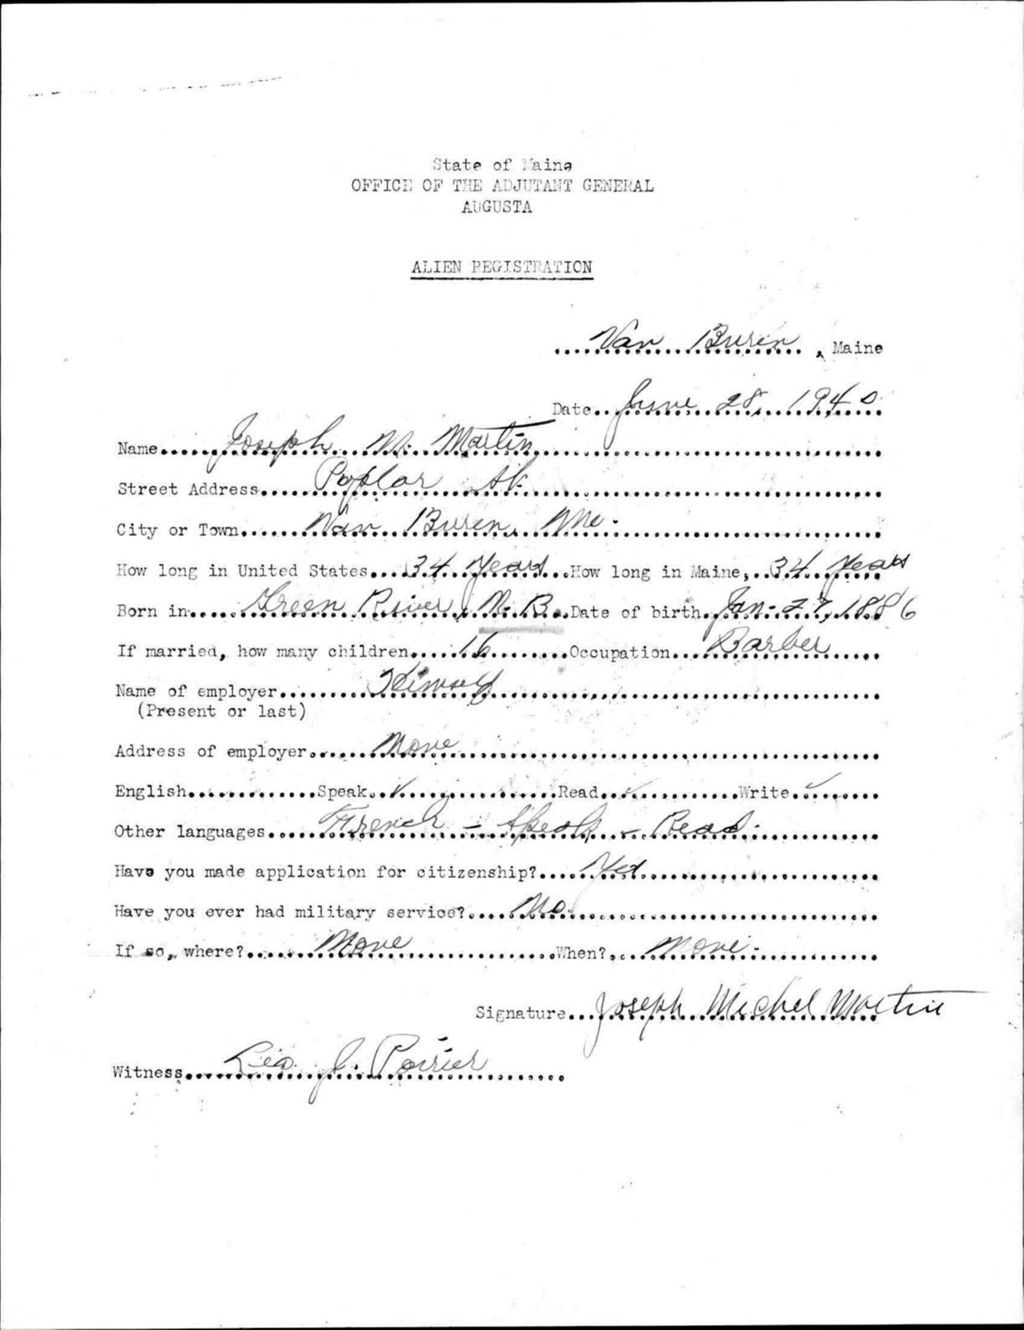 State of Maine
OFFICE OF THE ADJUTANT GENERAL
AUGUSTA
ALIEN REGISTRATION
Van Buren, Maine
Date June 28, 1940
Name Joseph M. Martin
Street Address Poplar St.
City or Town Van Buren, Me.
How long in United States 34 Years How long in Maine, 34 Years
Born in Green River, N.B. Date of birth Jan. 27, 1886
If married, how many children 16 Occupation Barber
Name of employer
(Present or last)
Address of employer None
English Speak ✓ Read ✓ Write ✓
Other languages French - Speak - Read.
Have you made application for citizenship? Yes
Have you ever had military service? No
If so, where? None When? None.
Signature Joseph Michel Martin
Witness Leo J. Poirier